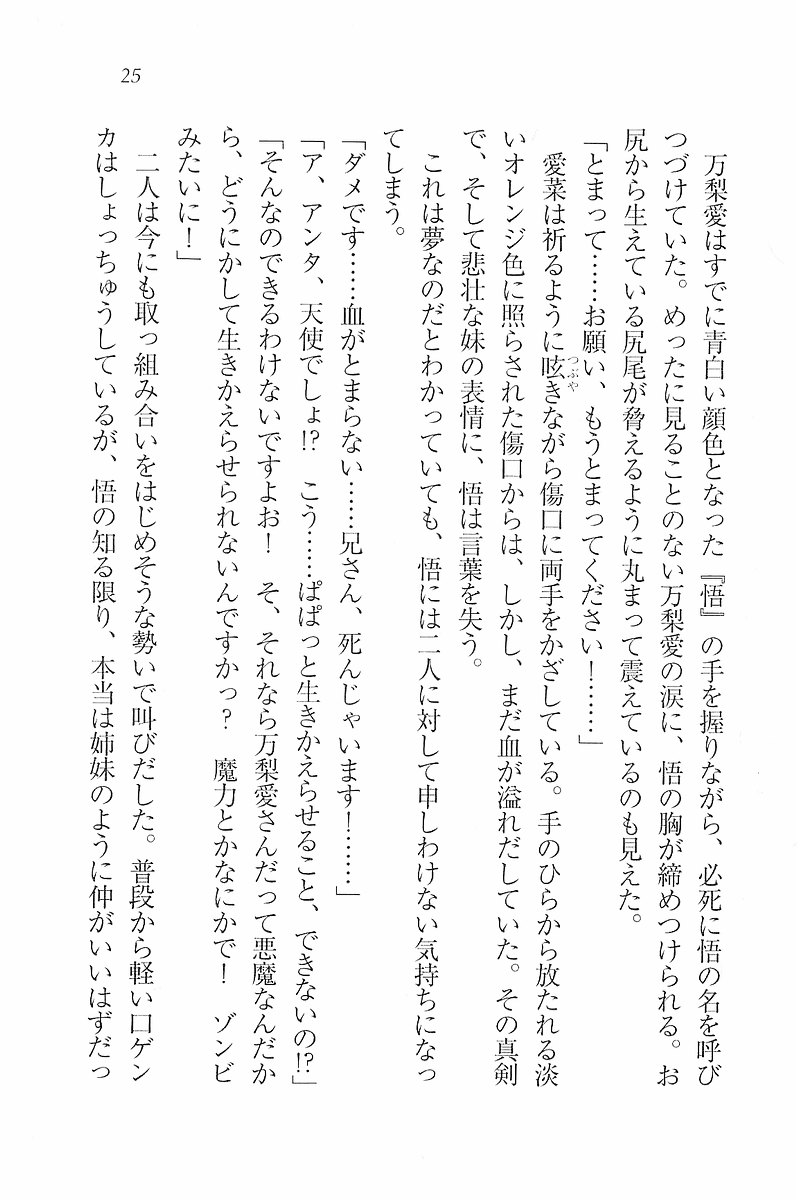 25
万梨愛はすでに青白い顔色となった『悟』の手を握りながら、必死に悟の名を呼び
つづけていた。めったに見ることのない万梨愛の涙に、悟の胸が締めつけられる。お
尻から生えている尻尾が脅えるように丸まって震えているのも見えた。
「とまって……お願い、もうとまってください！……」
愛菜は祈るように呟きながら傷口に両手をかざしている。手のひらから放たれる淡
つぶや
いオレンジ色に照らされた傷口からは、しかし、まだ血が溢れだしていた。その真剣
で、そして悲壮な妹の表情に、悟は言葉を失う。
これは夢なのだとわかっていても、悟には二人に対して申しわけない気持ちになっ
てしまう。
「ダメです……血がとまらない……兄さん、死んじゃいます！……」
「ア、アンタ、天使でしょ!?　こう……ぱぱっと生きかえらせること、できないの!?」
「そんなのできるわけないですよお！　そ、それなら万梨愛さんだって悪魔なんだか
ら、どうにかして生きかえらせられないんですかっ？　魔力とかなにかで！　ゾンビ
みたいに！」
二人は今にも取っ組み合いをはじめそうな勢いで叫びだした。普段から軽い口ゲン
カはしょっちゅうしているが、悟の知る限り、本当は姉妹のように仲がいいはずだっ